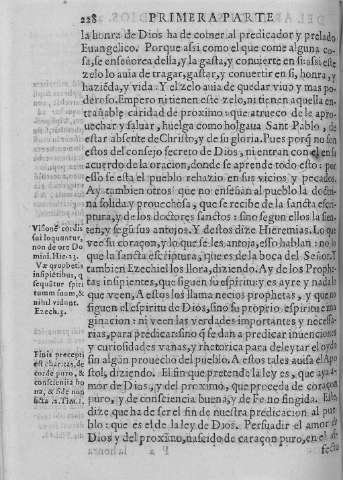 228 PRIMERA PARTE
la honra de Dios ha de comer al predicador y prelado
Euangelico. Porque assi como el que come alguna co-
sa, se enseñorea della, y la gasta, y conuierte en si: assi este
zelo lo auia de tragar, gastar, y conuertir en si, honra, y
haziẽda, y vida. Y el zelo auia de quedar viuo y mas po-
deroso. Empero ni tienen este zelo, ni tienen aquella en-
trañable caridad de proximo que a trueco de le apro-
uechar y saluar, huelga como holgaua Sant Pablo, de
estar absente de Christo, y de su gloria. Pues porq̃ no son
estos del consejo secreto de Dios, ni entran con el en su
acuerdo de la oracion, donde se aprende todo esto: por
esso se esta el pueblo rehazio en sus vicios y pecados.
Ay tambien otros que no enseñan al pueblo la doctri-
na solida y prouechosa, que se recibe de la sancta escri-
ptura, y de los doctores sanctos: sino segun ellos la sien-
ten, y segũ sus antojos. Y destos dize Hieremias. Lo que
vee su coraçon, y lo que se les antoja, esso hablan: no lo
que la sancta escriptura, que es de la boca del Señor. Y
tambien Ezechiel los llora, diziendo. Ay de los Prophe-
tas insipientes, que siguen su espiritu: y es ayre y nada lo
que veen. A estos los llama necios prophetas, y que no
siguen el espiritu de Dios, sino su proprio espiritu e ima-
ginacion: ni veen las verdades importantes y necessa-
rias, para predicar: sino q̃ se dan a predicar inuenciones
y curiosidades vanas, y rhetorica para deleytar el oydo
sin algũn prouecho del pueblo. A estos tales auisa el Apo-
stol, diziendo. El fin que pretende la ley es, que aya a-
mor de Dios, y del proximo, que proceda de coraçon
puro, y de consciencia buena, y de Fe no fingida. Esto
dize que ha de ser el fin de nuestra predicacion al pue-
blo: que es el de la ley de Dios. Persuadir el amor de
Dios y del proximo, nascido de caraçon puro, en el af-
fecto
Visionẽ cordis
sui loquuntur,
non de ore Do
mini. Hie. 23.
Væ prophetis
insipiẽtibus, q
sequũtur spiri
tum suum, &
nihil vident.
Ezech. 3.
Finis precepti
est charitas, de
corde puro, &
conscientia bo
na, & fide non
ficta. 1. Tim. 1.